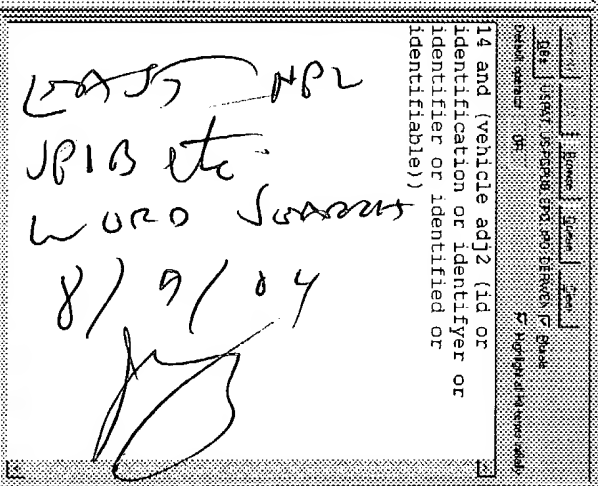 DBs USPAT US-PGPUB EPO JPO DERWENT Plurals
Default operator OR Highlight all hit terms initially
14 and (vehicle adj2 (id or
identification or identifyer or
identifier or identified or
identifiable))
EAST NPL
JPIB etc.
WORD SEARCH
8/9/04